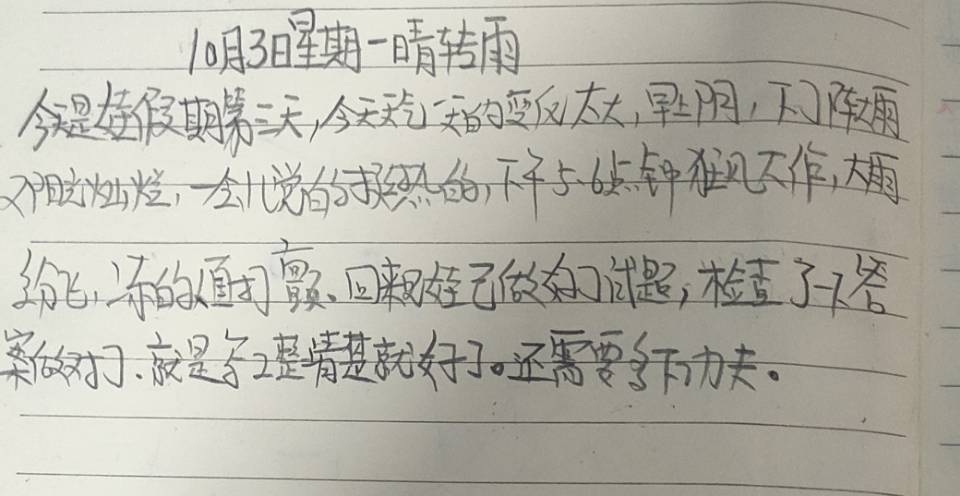 10月3日星期一晴转雨
今天是娃假期第三天,今天天气一天的变化太大,早上阴,下了阵大雨
又阳光灿烂,一会儿觉的挺热的,下午5.6点钟狂风大作,大雨
纷飞,冻的值打颤、回来见娃已做好了试题,检查了一下答
案做对了、就是字工整清楚就好了。还需要多下功夫。